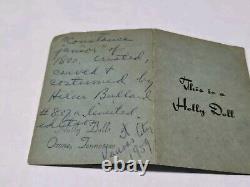 "Constance
Junior" of
1800. Created,
carved &
costumed by
Helen Bullard
#87 a limited
edition
Holly Dolls
Ozone, Tennessee
1959
This is a
Holly Doll